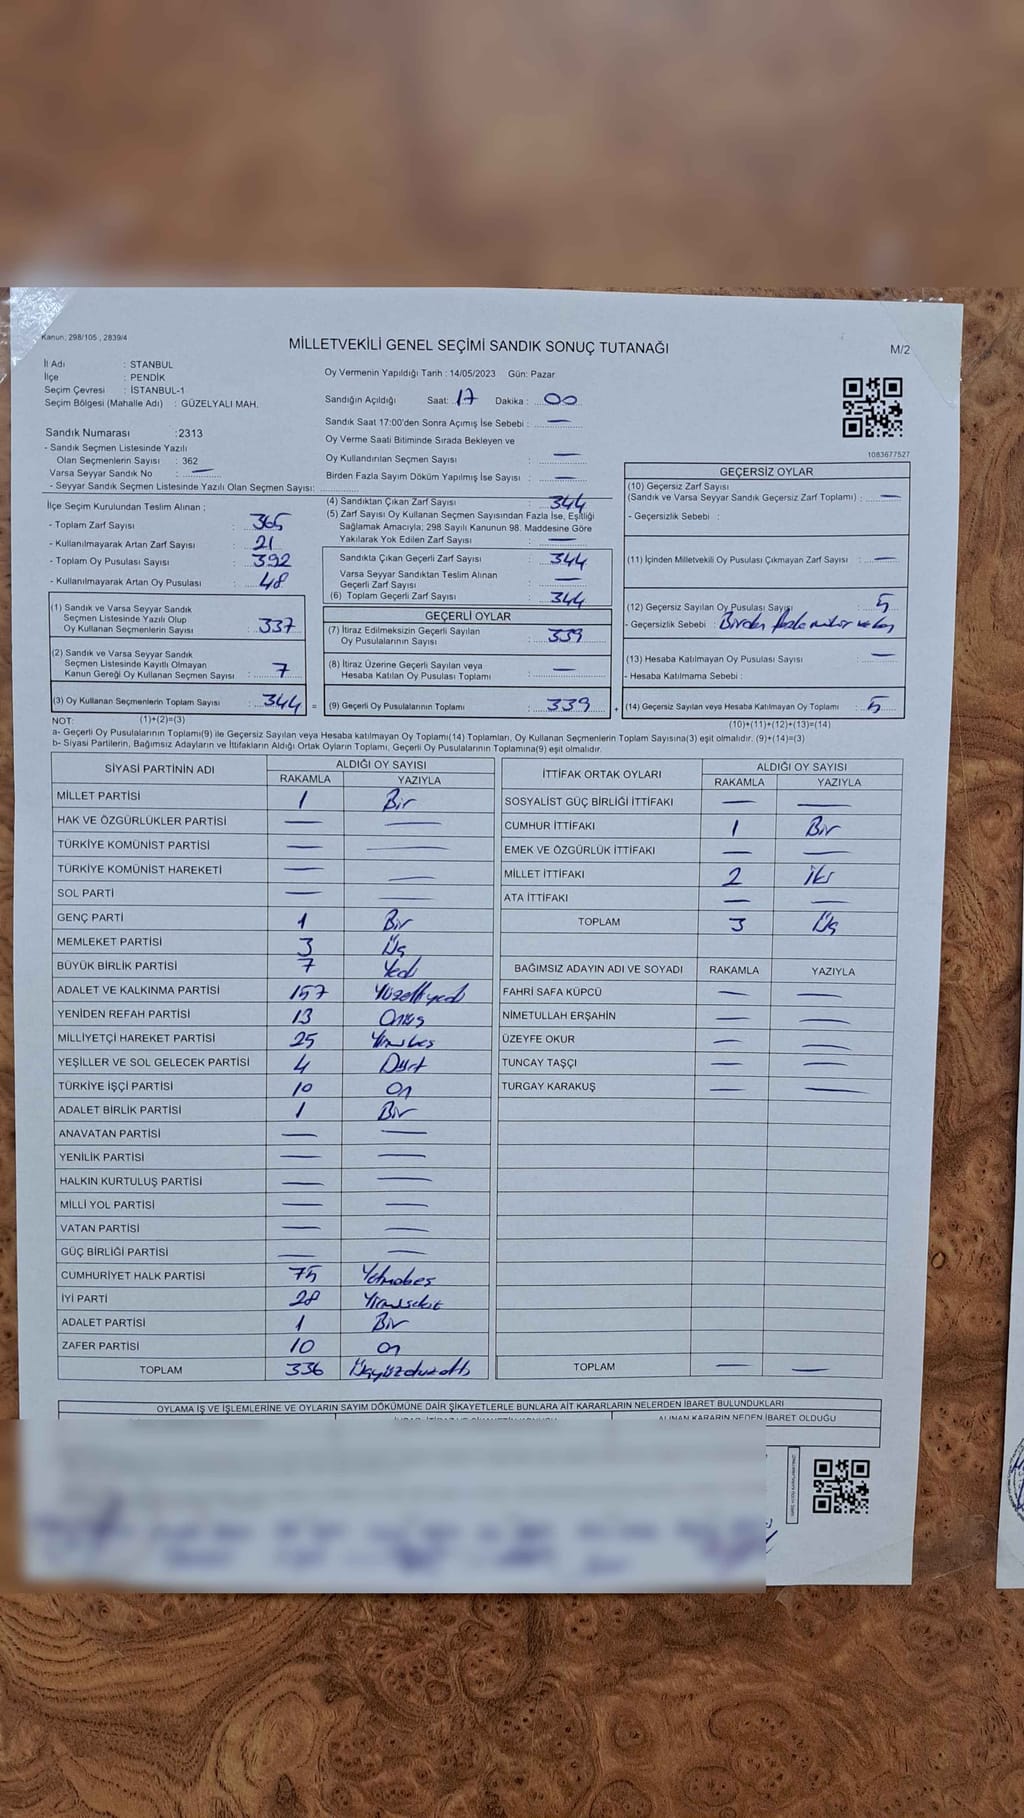 Kanun; 298/105 , 2839/4
MİLLETVEKİLİ GENEL SEÇİMİ SANDIK SONUÇ TUTANAĞI
M/2
İl Adı : STANBUL
İlçe : PENDİK
Seçim Çevresi : İSTANBUL-1
Seçim Bölgesi (Mahalle Adı) : GÜZELYALI MAH.
Oy Vermenin Yapıldığı Tarih : 14/05/2023 Gün: Pazar
Sandığın Açıldığı Saat: 17 Dakika : 00
Sandık Saat 17:00'den Sonra Açımış İse Sebebi : —
Oy Verme Saati Bitiminde Sırada Bekleyen ve
Oy Kullandırılan Seçmen Sayısı : —
Birden Fazla Sayım Döküm Yapılmış İse Sayısı : —
Sandık Numarası :2313
- Sandık Seçmen Listesinde Yazılı
Olan Seçmenlerin Sayısı : 362
Varsa Seyyar Sandık No : —
- Seyyar Sandık Seçmen Listesinde Yazılı Olan Seçmen Sayısı:
İlçe Seçim Kurulundan Teslim Alınan ;
- Toplam Zarf Sayısı : 365
- Kullanılmayarak Artan Zarf Sayısı : 21
- Toplam Oy Pusulası Sayısı : 392
- Kullanılmayarak Artan Oy Pusulası : 48
(1) Sandık ve Varsa Seyyar Sandık
Seçmen Listesinde Yazılı Olup
Oy Kullanan Seçmenlerin Sayısı : 337
(2) Sandık ve Varsa Seyyar Sandık
Seçmen Listesinde Kayıtlı Olmayan
Kanun Gereği Oy Kullanan Seçmen Sayısı : 7
(3) Oy Kullanan Seçmenlerin Toplam Sayısı : 344 =
(4) Sandıktan Çıkan Zarf Sayısı : 344
(5) Zarf Sayısı Oy Kullanan Seçmen Sayısından Fazla İse, Eşitliği
Sağlamak Amacıyla; 298 Sayılı Kanunun 98. Maddesine Göre
Yakılarak Yok Edilen Zarf Sayısı : —
Sandıkta Çıkan Geçerli Zarf Sayısı : 344
Varsa Seyyar Sandıktan Teslim Alınan
Geçerli Zarf Sayısı : —
(6) Toplam Geçerli Zarf Sayısı : 344
GEÇERLİ OYLAR
(7) İtiraz Edilmeksizin Geçerli Sayılan
Oy Pusulalarının Sayısı : 339
(8) İtiraz Üzerine Geçerli Sayılan veya
Hesaba Katılan Oy Pusulası Toplamı : —
(9) Geçerli Oy Pusulalarının Toplamı : 339 +
1083677527
GEÇERSİZ OYLAR
(10) Geçersiz Zarf Sayısı
(Sandık ve Varsa Seyyar Sandık Geçersiz Zarf Toplamı) : —
- Geçersizlik Sebebi :
(11) İçinden Milletvekili Oy Pusulası Çıkmayan Zarf Sayısı : —
(12) Geçersiz Sayılan Oy Pusulası Sayısı : 5
- Geçersizlik Sebebi : Birden fazla mühür
(13) Hesaba Katılmayan Oy Pusulası Sayısı : —
- Hesaba Katılmama Sebebi :
(14) Geçersiz Sayılan veya Hesaba Katılmayan Oy Toplamı : 5
NOT: (1)+(2)=(3)
(10)+(11)+(12)+(13)=(14)
a- Geçerli Oy Pusulalarının Toplamı(9) ile Geçersiz Sayılan veya Hesaba katılmayan Oy Toplamı(14) Toplamları, Oy Kullanan Seçmenlerin Toplam Sayısına(3) eşit olmalıdır. (9)+(14)=(3)
b- Siyasi Partilerin, Bağımsız Adayların ve İttifakların Aldığı Ortak Oyların Toplamı, Geçerli Oy Pusulalarının Toplamına(9) eşit olmalıdır.
SİYASİ PARTİNİN ADI ALDIĞI OY SAYISI
RAKAMLA YAZIYLA
MİLLET PARTİSİ 1 Bir
HAK VE ÖZGÜRLÜKLER PARTİSİ — —
TÜRKİYE KOMÜNİST PARTİSİ — —
TÜRKİYE KOMÜNİST HAREKETİ — —
SOL PARTİ —
GENÇ PARTİ 1 Bir
MEMLEKET PARTİSİ 3 Üç
BÜYÜK BİRLİK PARTİSİ 7 Yedi
ADALET VE KALKINMA PARTİSİ 157 Yüzelliyedi
YENİDEN REFAH PARTİSİ 13 Onüç
MİLLİYETÇİ HAREKET PARTİSİ 25 Yirmibeş
YEŞİLLER VE SOL GELECEK PARTİSİ 4 Dört
TÜRKİYE İŞÇİ PARTİSİ 10 On
ADALET BİRLİK PARTİSİ 1 Bir
ANAVATAN PARTİSİ — —
YENİLİK PARTİSİ — —
HALKIN KURTULUŞ PARTİSİ — —
MİLLİ YOL PARTİSİ — —
VATAN PARTİSİ — —
GÜÇ BİRLİĞİ PARTİSİ — —
CUMHURİYET HALK PARTİSİ 75 Yetmişbeş
İYİ PARTİ 28 Yirmisekiz
ADALET PARTİSİ 1 Bir
ZAFER PARTİSİ 10 on
TOPLAM 336 Üçyüzotuzaltı
İTTİFAK ORTAK OYLARI ALDIĞI OY SAYISI
RAKAMLA YAZIYLA
SOSYALİST GÜÇ BİRLİĞİ İTTİFAKI — —
CUMHUR İTTİFAKI 1 Bir
EMEK VE ÖZGÜRLÜK İTTİFAKI — —
MİLLET İTTİFAKI 2 İki
ATA İTTİFAKI — —
TOPLAM 3 Üç
BAĞIMSIZ ADAYIN ADI VE SOYADI RAKAMLA YAZIYLA
FAHRİ SAFA KÜPCÜ — —
NİMETULLAH ERŞAHİN — —
ÜZEYFE OKUR — —
TUNCAY TAŞÇI — —
TURGAY KARAKUŞ — —
TOPLAM — —
OYLAMA İŞ VE İŞLEMLERİNE VE OYLARIN SAYIM DÖKÜMÜNE DAİR ŞİKAYETLERLE BUNLARA AİT KARARLARIN NELERDEN İBARET BULUNDUKLARI
ALINAN KARARIN NEDEN İBARET OLDUĞU